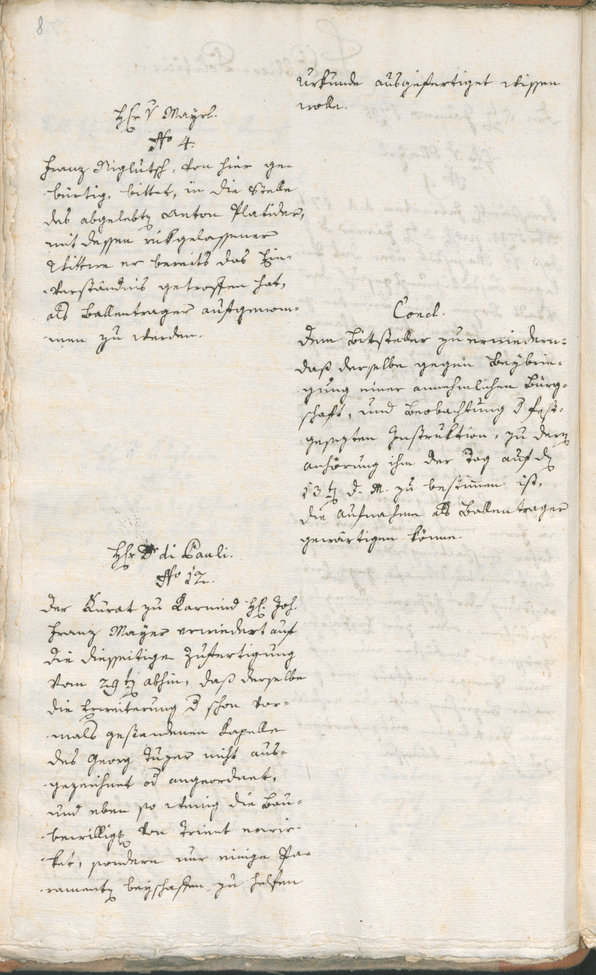 8
Urkunde ausgefertiget wissen
wolle.
H: v Mayrl.
No 4.
Franz Niglutsch, von hier ge-
bürtig, bittet, in die Stelle
des abgelebten Anton Platider,
mit dessen rükgelassener
Wittwe er bereits das Ein-
verständnis getroffen hat,
als Ballentrager aufgenom-
men zu werden.
Concl.
Dem Bitsteller zu erwiedern:
daß derselbe gegen Beybrin-
gung einer annehmlichen Bürg-
schaft, und Beobachtung d fest-
gesezten Instruktion, zu deren
anhörung ihm der Tag auf den
13ten d. M. zu bestimen ist,
die Aufnahme als Ballentrager
gewärtigen könne.
H: di Pauli.
No 12.
Der Kurat zu Karneid H: Joh.
Franz Mayer erwiedert auf
die diesseitige Zufertigung
vom 29ten abhin, daß derselbe
die Erweiterung d schon vor-
mals gestandenen Kapelle
des Georg nicht aus-
gezeichnet od angeordnet,
und eben so wenig die Bau-
bewilligg von Trient erwir-
ket, sondern nur einige Pa-
ramenten beyschaffen zu helfen